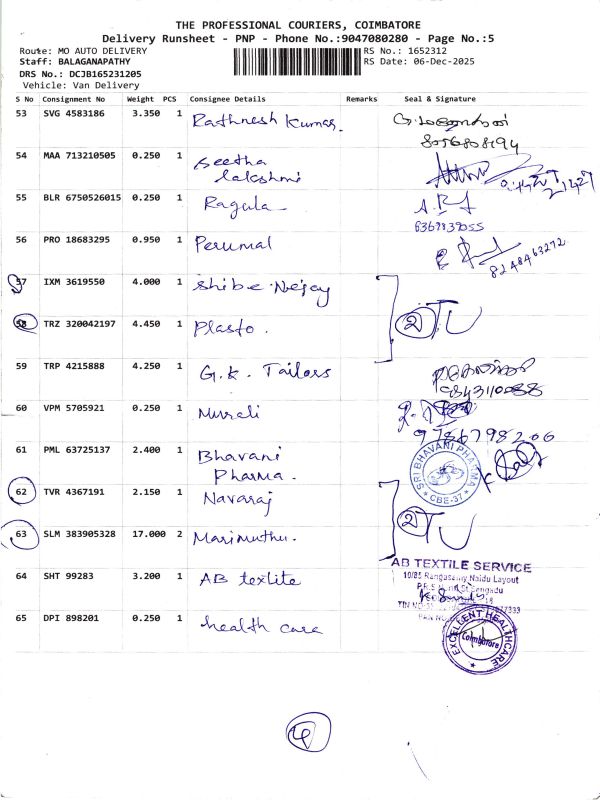 THE PROFESSIONAL COURIERS, COIMBATORE
Delivery Runsheet - PNP - Phone No.:9047080280 - Page No.:5
Route: MO AUTO DELIVERY
RS No.: 1652312
Staff: BALAGANAPATHY
RS Date: 06-Dec-2025
DRS No.: DCJB165231205
Vehicle: Van Delivery
S No Consignment No Weight PCS Consignee Details Remarks Seal & Signature
53 SVG 4583186 3.350 1 Rathnesh Kumar.
8056808194
54 MAA 713210505 0.250 1 Seetha
lakshmi
55 BLR 6750526015 0.250 1 Ragula
56 PRO 18683295 0.950 1 Perumal
8248463272
57 IXM 3619550 4.000 1
58 TRZ 320042197 4.450 1 Plasto.
2 TU
59 TRP 4215888 4.250 1 G.K. Tailors
60 VPM 5705921 0.250 1 Murali
9786798206
61 PML 63725137 2.400 1 Bhavani
Pharma.
SRI BHAVANI PHARMA
CBE-37
62 TVR 4367191 2.150 1 Navaraj
2 TU
63 SLM 383905328 17.000 2 Marimuthu.
64 SHT 99283 3.200 1 AB textite
AB TEXTILE SERVICE
10/85 Rangasamy Naidu Layout
65 DPI 898201 0.250 1 health care
EXCELLENT HEALTHCARE
Coimbatore